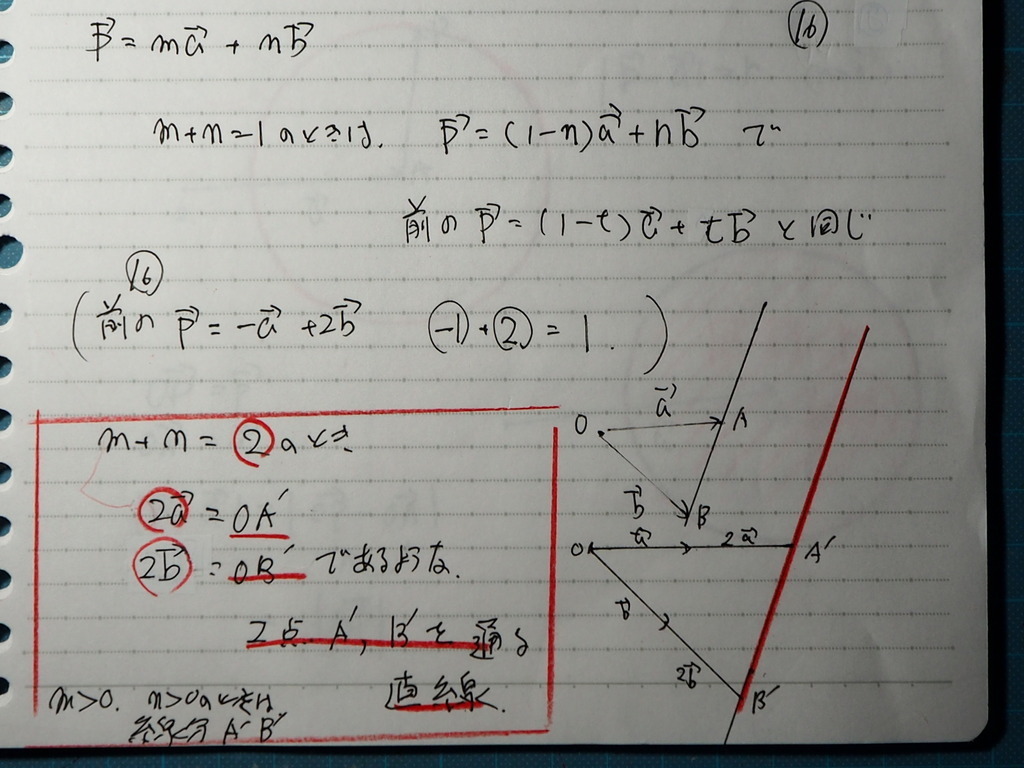 ⑯
p⃗ = ma⃗ + nb⃗
m+n=1のときは、 p⃗ = (1-n)a⃗ + nb⃗ で
前の p⃗ = (1-t)a⃗ + tb⃗ と同じ
⑯
(前の p⃗ = -a⃗ + 2b⃗ (-1) + ② = 1.)
m+n = ②のとき
2a⃗ = OA′
2b⃗ = OB′ であるような、
2点 A′, B′を通る
直線.
m>0. n>0のときは
線分 A′B′
O a⃗ A
b⃗ B
O a⃗ 2a⃗ A′
b⃗
2b⃗ B′